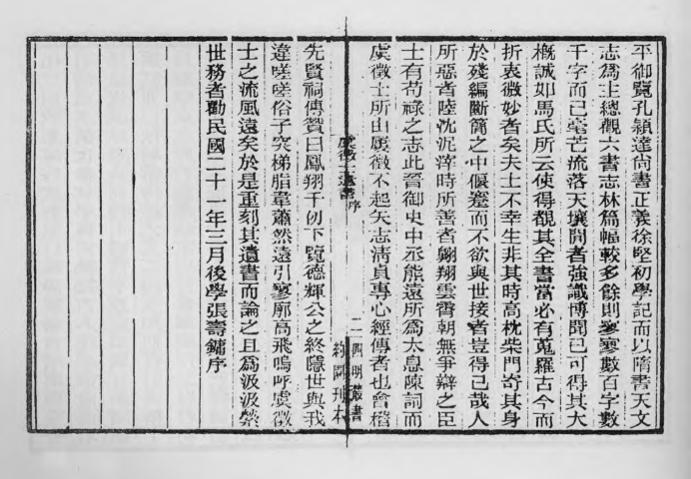 平御覽孔穎達尚書正義徐堅初學記而以隋書天文
志爲主總觀六書志林篇幅較多餘則寥寥數百字數
千字而已毫芒流落天壤間者強識博聞已可得其大
槪誠如馬氏所云使得覩其全書當必有蒐羅古今而
折衷微妙者矣夫士不幸生非其時高枕柴門寄其身
於殘編斷簡之中偃蹇而不欲與世接者豈得已哉人
所惡者陸沈泥滓時所善者翱翔雲霄朝無爭辯之臣
士有苟祿之志此晉御史中丞熊遠所爲太息陳詞而
虞徵士所由屢徵不起矢志淸貞專心經傳者也會稽
虞徵士遺書序
二 四明叢書
約園刊本
先賢祠傳贊曰鳳翔千仞下覽德輝公之終隱世與我
違嗟嗟俗子突梯脂韋蕭然遠引寥廓高飛嗚呼虞徵
士之流風遠矣於是重刻其遺書而論之且爲汲汲縈
世務者勸民國二十一年三月後學張壽鏞序